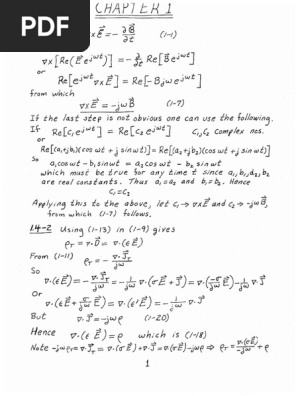 PDF
CHAPTER 1
∇x𝓔⃗ = - ∂𝓑⃗/∂t (1-1)
∇x[Re(E⃗ e^jωt)] = - ∂/∂t Re[B⃗ e^jωt]
or
Re[e^jωt ∇xE⃗] = Re[-B⃗jω e^jωt]
from which
∇xE⃗ = -jωB⃗ (1-7)
If the last step is not obvious one can use the following.
If Re[c₁e^jωt] = Re[c₂e^jωt] c₁,c₂ complex nos.
or
Re[(a₁+jb₁)(cos ωt + j sin ωt)] = Re[(a₂+jb₂)(cos ωt + j sin ωt)]
So
a₁cos ωt - b₁ sin ωt = a₂ cos ωt - b₂ sin ωt
which must be true for any time t since a₁, b₁, a₂, b₂
are real constants. Thus a₁=a₂ and b₁=b₂. Hence
c₁=c₂
Applying this to the above, let c₁→∇xE⃗ and c₂→-jωB⃗,
from which (1-7) follows.
1.4-2 Using (1-13) in (1-9) gives
ρ_T = ∇·D⃗ = ∇·(εE⃗)
From (1-11) ρ_T = - ∇·J⃗_T/jω
So
∇·(εE⃗) = - ∇·J⃗_T/jω = - 1/jω ∇·(σE⃗ + J⃗) = ∇·(-σE⃗/jω) - 1/jω ∇·J⃗
Or
∇·(εE⃗ + σ/jω E⃗) = ∇·(ε'E⃗) = - 1/jω ∇·J⃗
But ∇·J⃗ = -jωρ (1-20)
Hence ∇·(ε E⃗) = ρ which is (1-18)
Note -jωρ_T = ∇·J⃗_T = ∇·(σE⃗) + ∇·J⃗ = ∇·(σE⃗) - jωρ ⇒ ρ_T = - ∇·(σE⃗)/jω + ρ
1